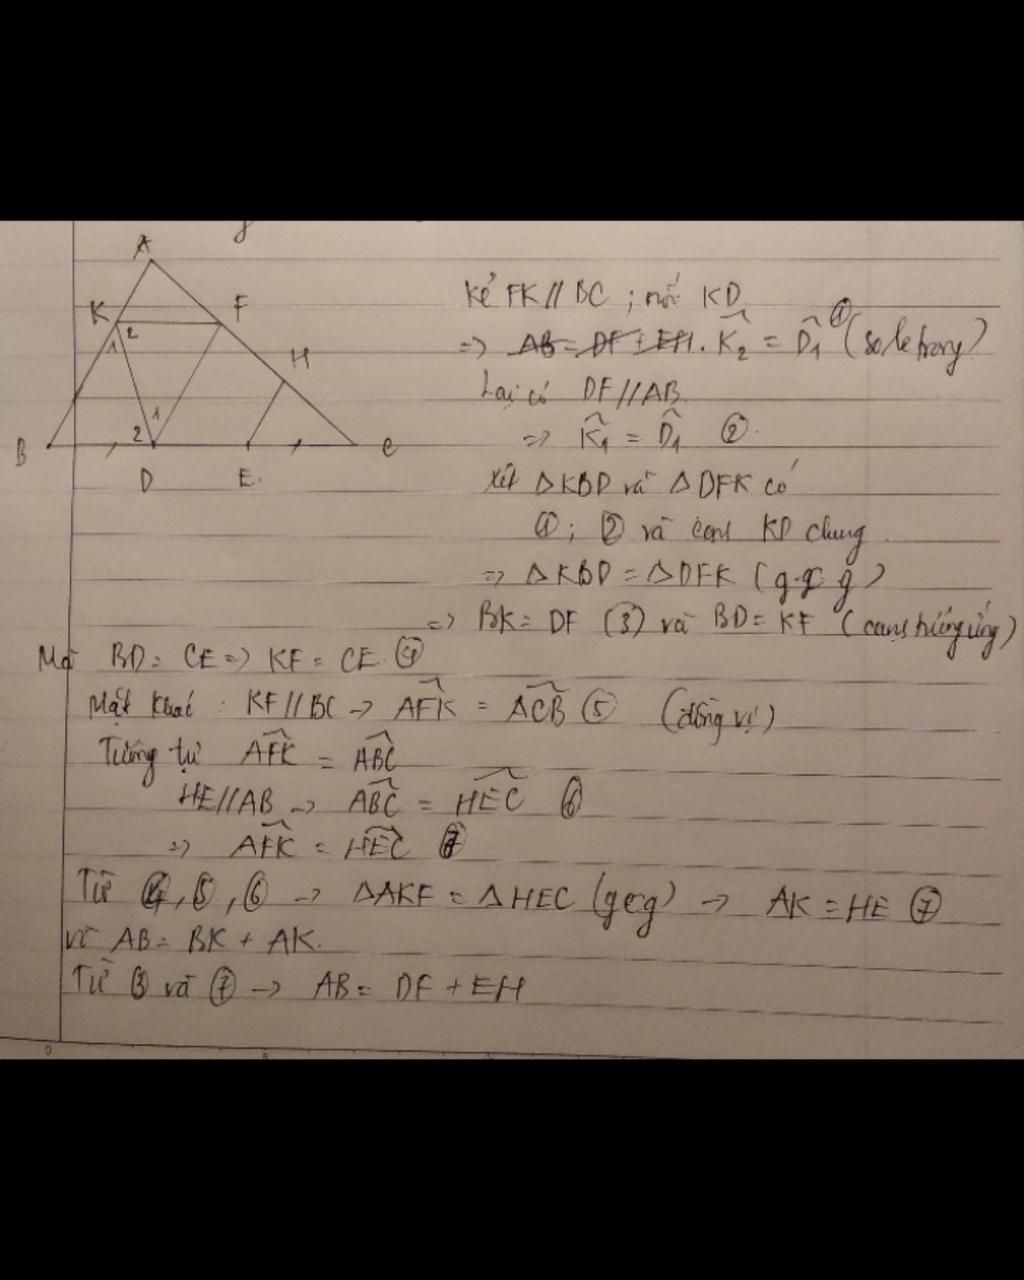 A
K
F
2
1
H
1
2
B
D
E.
C
Kẻ FK // BC ; nối KD
=> AB = DF + EH. K̂₂ = D̂₁ ① (so le trong)
Lại có DF // AB
=> K̂₁ = D̂₁ ②.
Xét ΔKBD và ΔDFK có
①; ② và cạnh KD chung
=> ΔKBD = ΔDFK (g.c.g)
=> BK = DF (3) và BD = KF (cạnh tương ứng)
Mà BD = CE => KF = CE. ④
Mặt khác : KF // BC -> AFK̂ = ACB̂ ⑤ (đồng vị)
Tương tự AFK̂ = ABĈ
HE // AB -> ABĈ = HEĈ ⑥
=> AFK̂ = HEĈ
Từ ④, ⑤, ⑥ -> ΔAKF = ΔHEC (gcg) -> AK = HE ⑦
vì AB = BK + AK.
Từ ③ và ⑦ -> AB = DF + EH
0
5